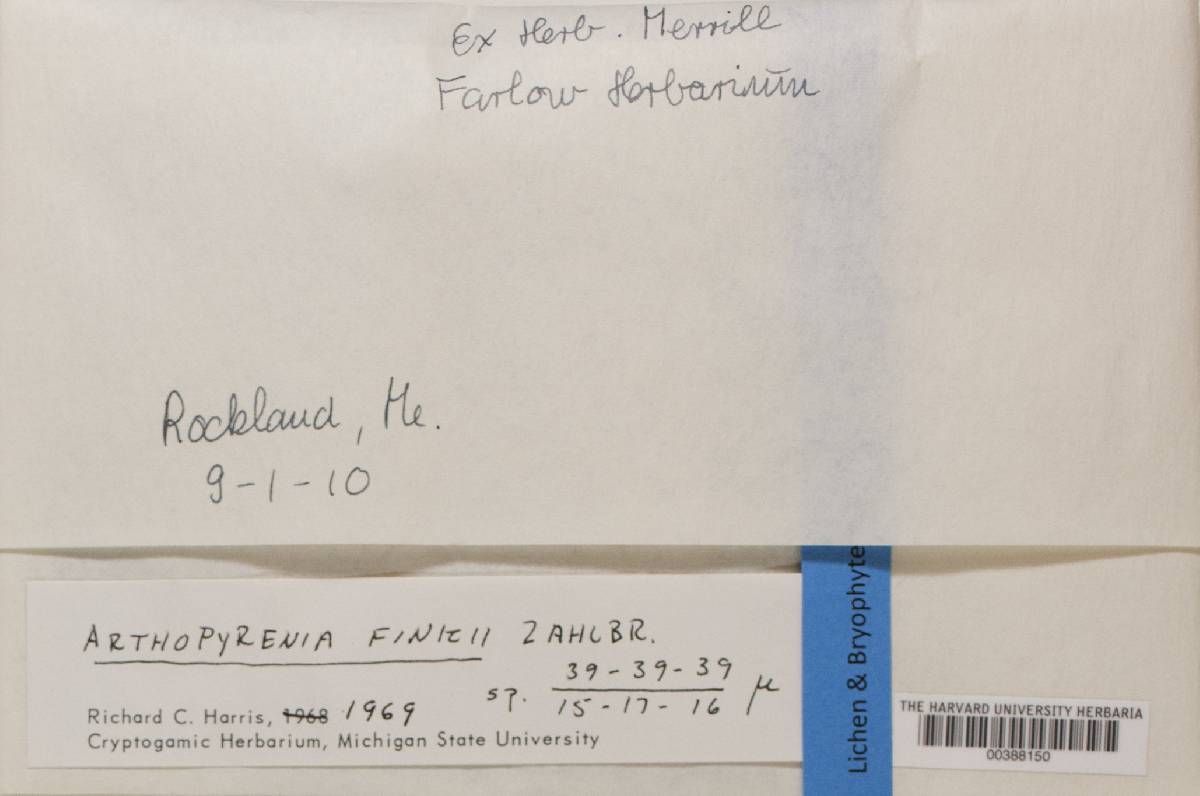 Ex Herb. Merrill
Farlow Herbarium
Rockland, Me.
9-1-10
ARTHOPYRENIA FINKII ZAHLBR.
sp. 39-39-39 / 15-17-16 µ
Richard C. Harris, 1968 1969
Cryptogamic Herbarium, Michigan State University
Lichen & Bryophyte
THE HARVARD UNIVERSITY HERBARIA
00388150